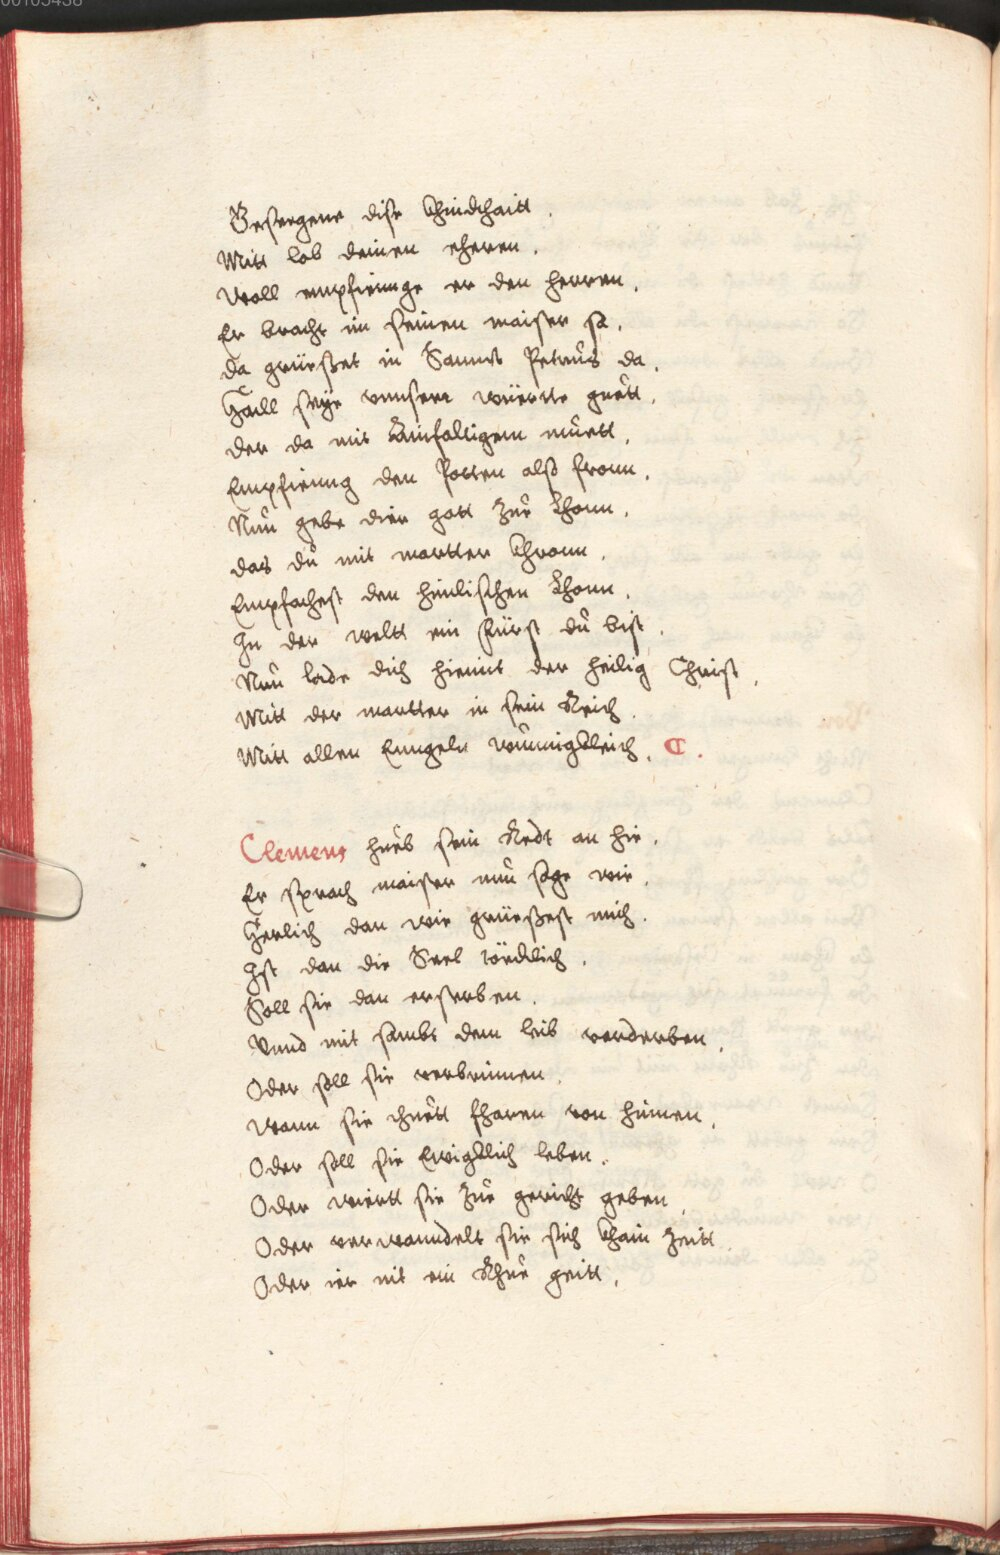 00105438
Gesegene dise Khindthaitt.
Mitt lob deinen eheren.
Woll empfienge er den herren.
Er bracht in seinen maister so.
da grüesßet in Sannct Petrus da.
Haill seye unnserm württe guett.
der da mit Ainfaltigem muett.
Empfieng den Potten also fronn.
Nun gebe dier gott zue Lhonn.
das du mit martter Chronn.
Empfahest den himlischen Lhonn.
In der weltt ein fürst du bist.
Nun lade dich hiemit der heilig Christ.
Mitt der martter in sein Reich.
Mitt allen Enngeln wunnigkleich.
Clemens hueb sein Redt an hie.
Er sprach maister nun sage mir.
Herlich dan wir grüesßest mich.
Ist dan die Seel tödtlich.
Soll sie dan ersterben.
Unnd mit sambt dem leib verderben.
Oder soll sie verbrinnen.
Wann sie thuett fharen von hinnen.
Oder soll sie Ewigklich leben.
Oder wiertt sie zue gericht geben.
Oder verwanndelt sie sich khain zeitt.
Oder ier nit ein Rhue geitt.